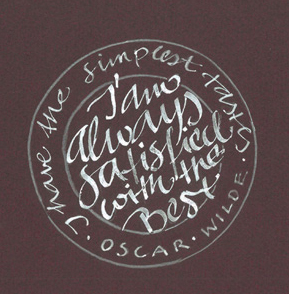 I have the simplest tastes.
I am
always
satisfied
with the
Best
· OSCAR · WILDE ·